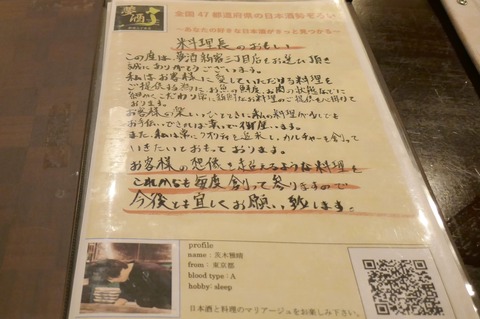 夢酒
全国47都道府県の日本酒勢ぞろい
～あなたの好きな日本酒がきっと見つかる～
料理長のおもい
この度は夢酒新宿三丁目店をお選び頂き
誠にありがとうございます。
私はお客様に愛していただける料理を
ご提供する為に、お魚の鮮度、お肉の状態などに
細かくこだわり常に新鮮なお料理のご提供を心掛けて
おります。
お客様の楽しいひとときを私の料理が少しでも
お手伝いできれば幸いで御座います。
また、私は常にクオリティを追求し、カルチャーを創って
いきたいとおもっております。
お客様の想像を超えるような料理を
これからも毎度創って参りますので
今後とも宜しくお願い致します。
profile
name：茨木雅晴
from：東京都
blood type：A
hobby：sleep
日本酒と料理のマリアージュをお楽しみ下さい。